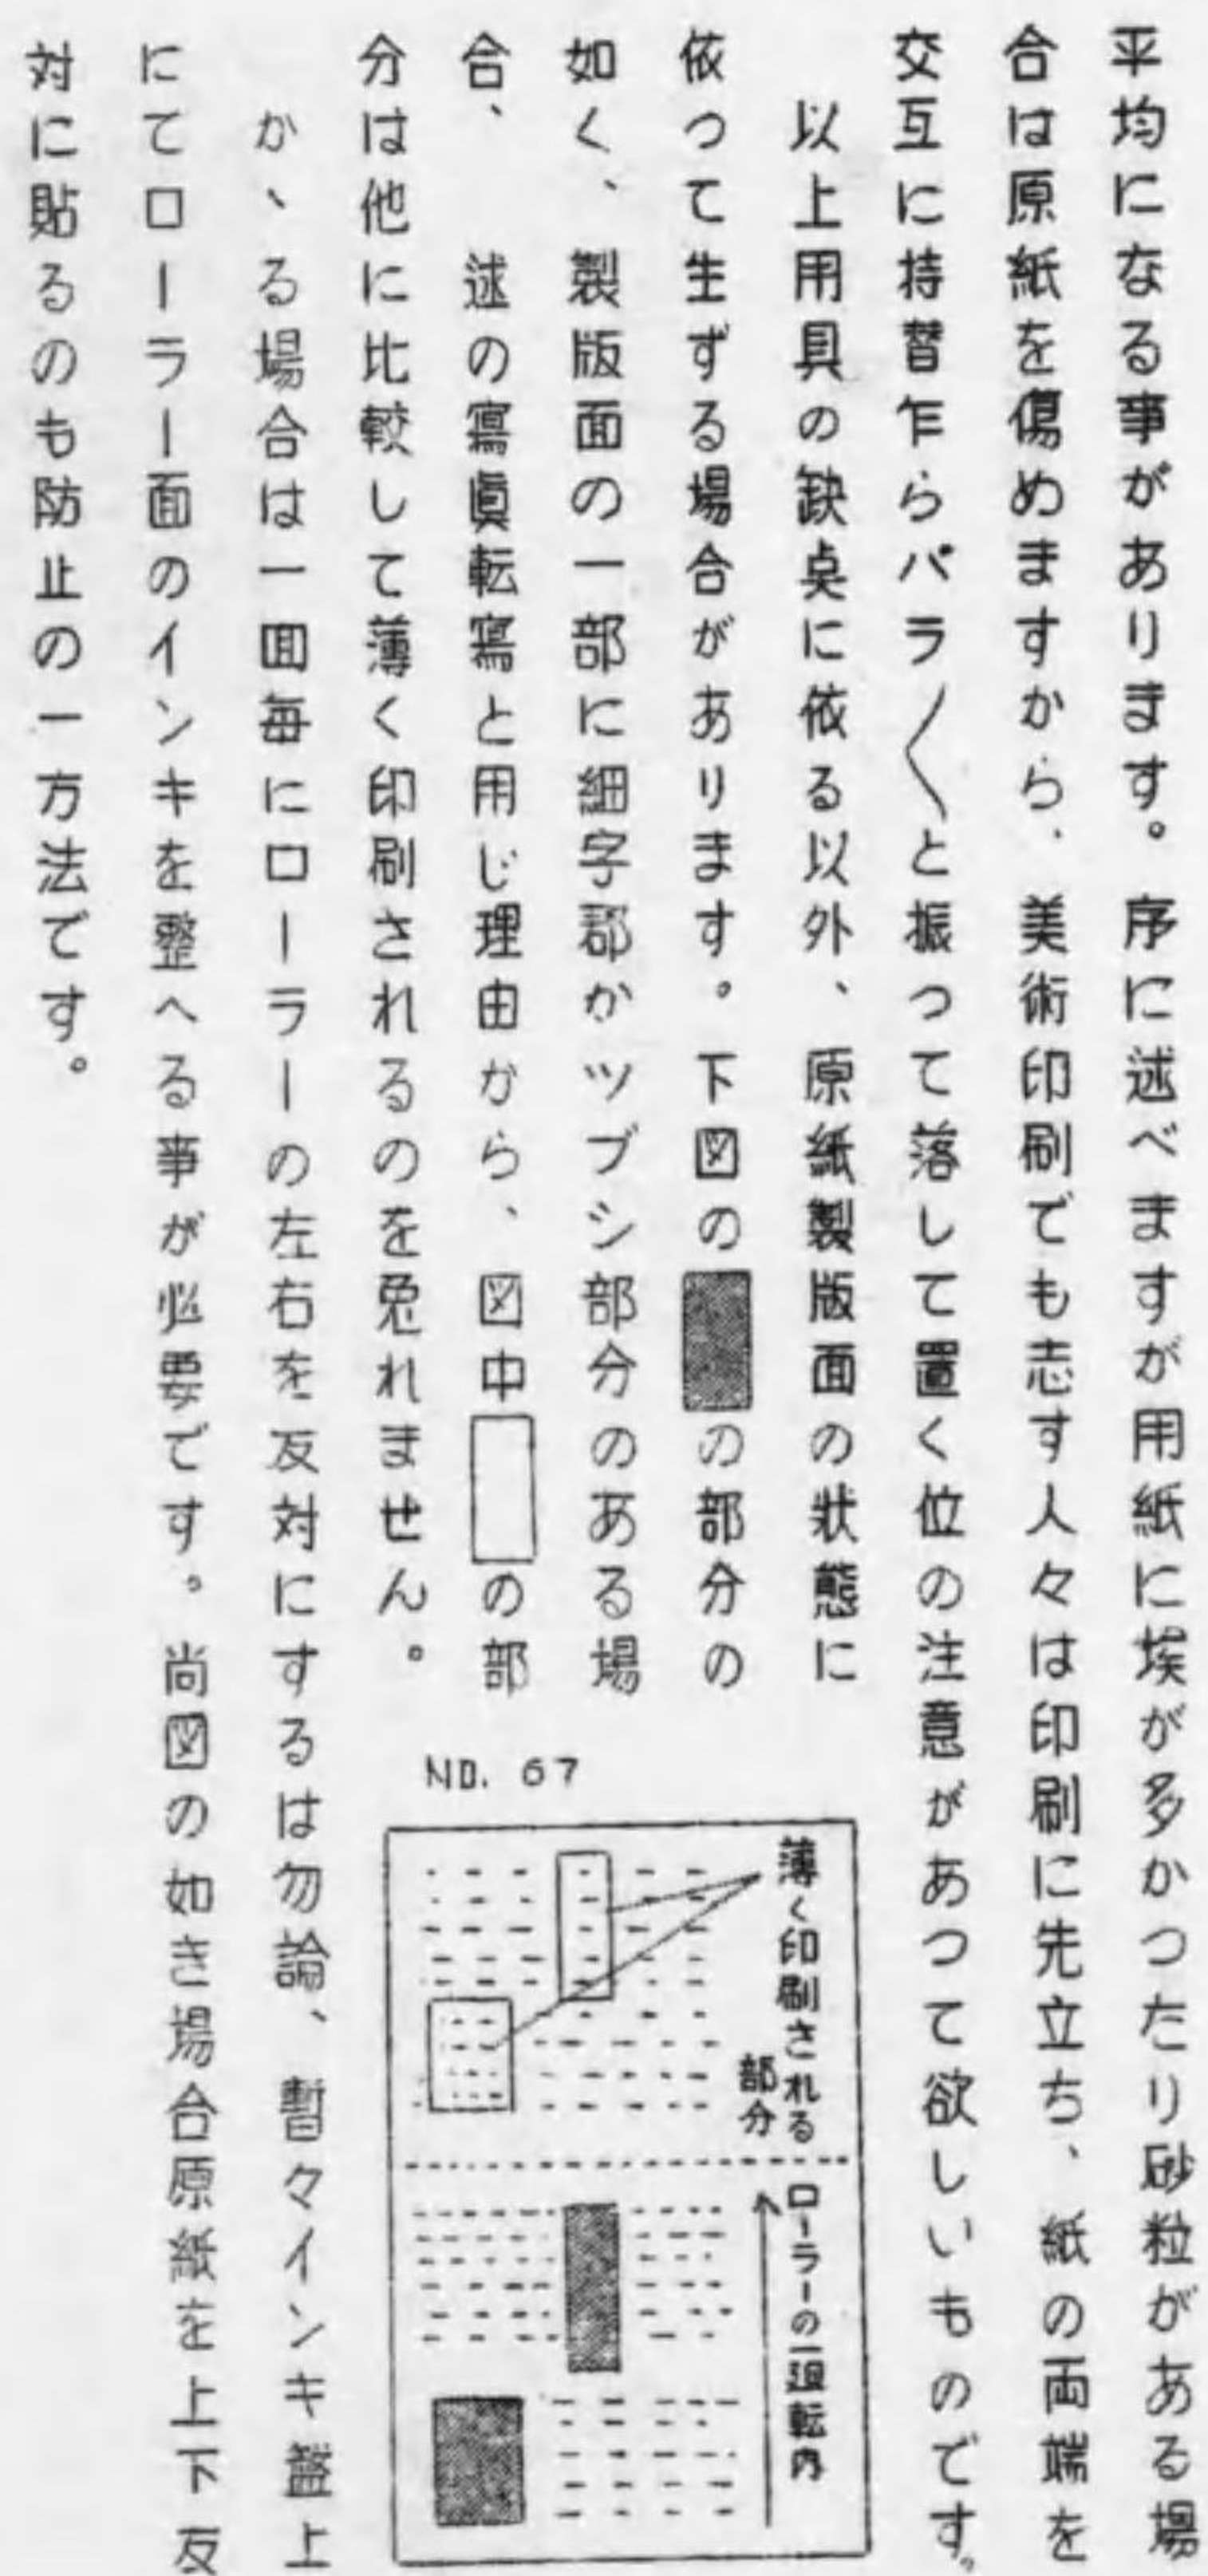 平均になる事があります。序に述べますが用紙に埃が多かつたり砂粒がある場
合は原紙を傷めますから、美術印刷でも志す人々は印刷に先立ち、紙の両端を
交互に持替乍らパラ〱と振つて落して置く位の注意があつて欲しいものです。
以上用具の缺点に依る以外、原紙製版面の狀態に
依つて生ずる場合があります。下図の の部分の
如く、製版面の一部に細字郡かツブシ部分のある場
合、 述の寫眞転寫と用じ理由から、図中 の部
分は他に比較して薄く印刷されるのを免れません。
かゝる場合は一回毎にローラーの左右を反対にするは勿論、暫々インキ盤上
にてローラー面のインキを整へる事が必要です。尚図の如き場合原紙を上下反
対に貼るのも防止の一方法です。
NO. 67
薄く印刷される
部分
ローラーの一廻転内